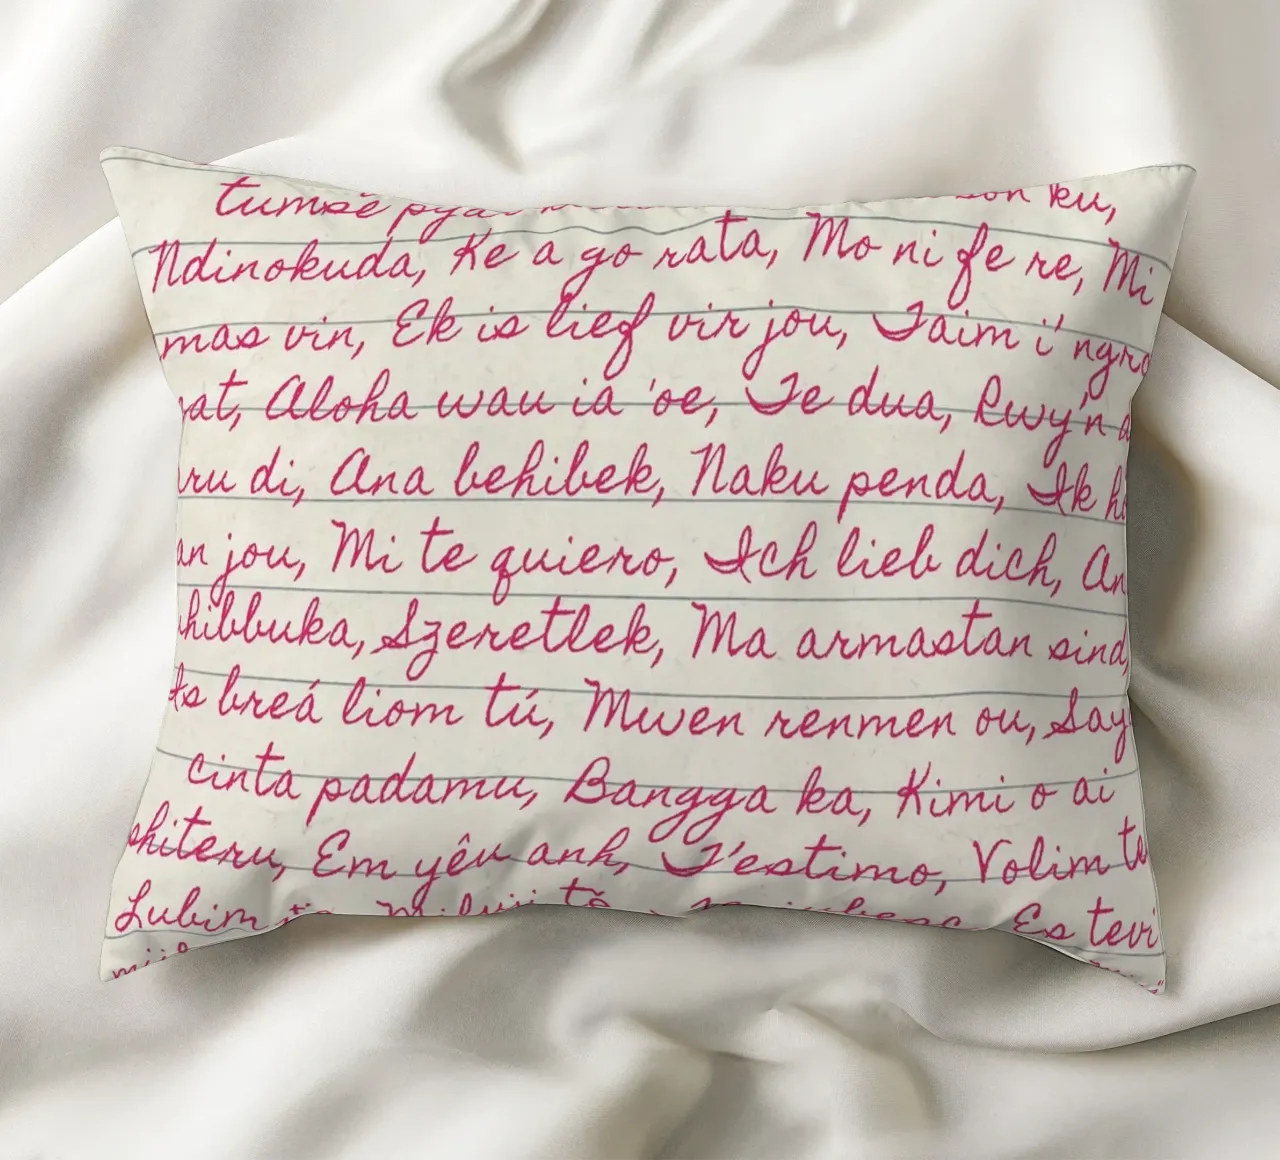 tumse
ku,
Ndinokuda, Ke a go rata, Mo ni fe re, Mi
mas vin, Ek is lief vir jou, Taim i' ngra
at, Aloha wau ia 'oe, Te dua, Rwy'n a
ru di, Ana behibek, Naku penda, Ik h
an jou, Mi te quiero, Ich lieb dich, An
hibbuka, Szeretlek, Ma armastan sind,
Is breá liom tú, Mwen renmen ou, Say
cinta padamu, Bangga ka, Kimi o ai
shiteru, Em yêu anh, T'estimo, Volim te
Lubim
Es tevi